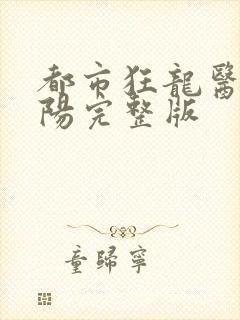 都市狂龍醫
陽完整版
童歸寧